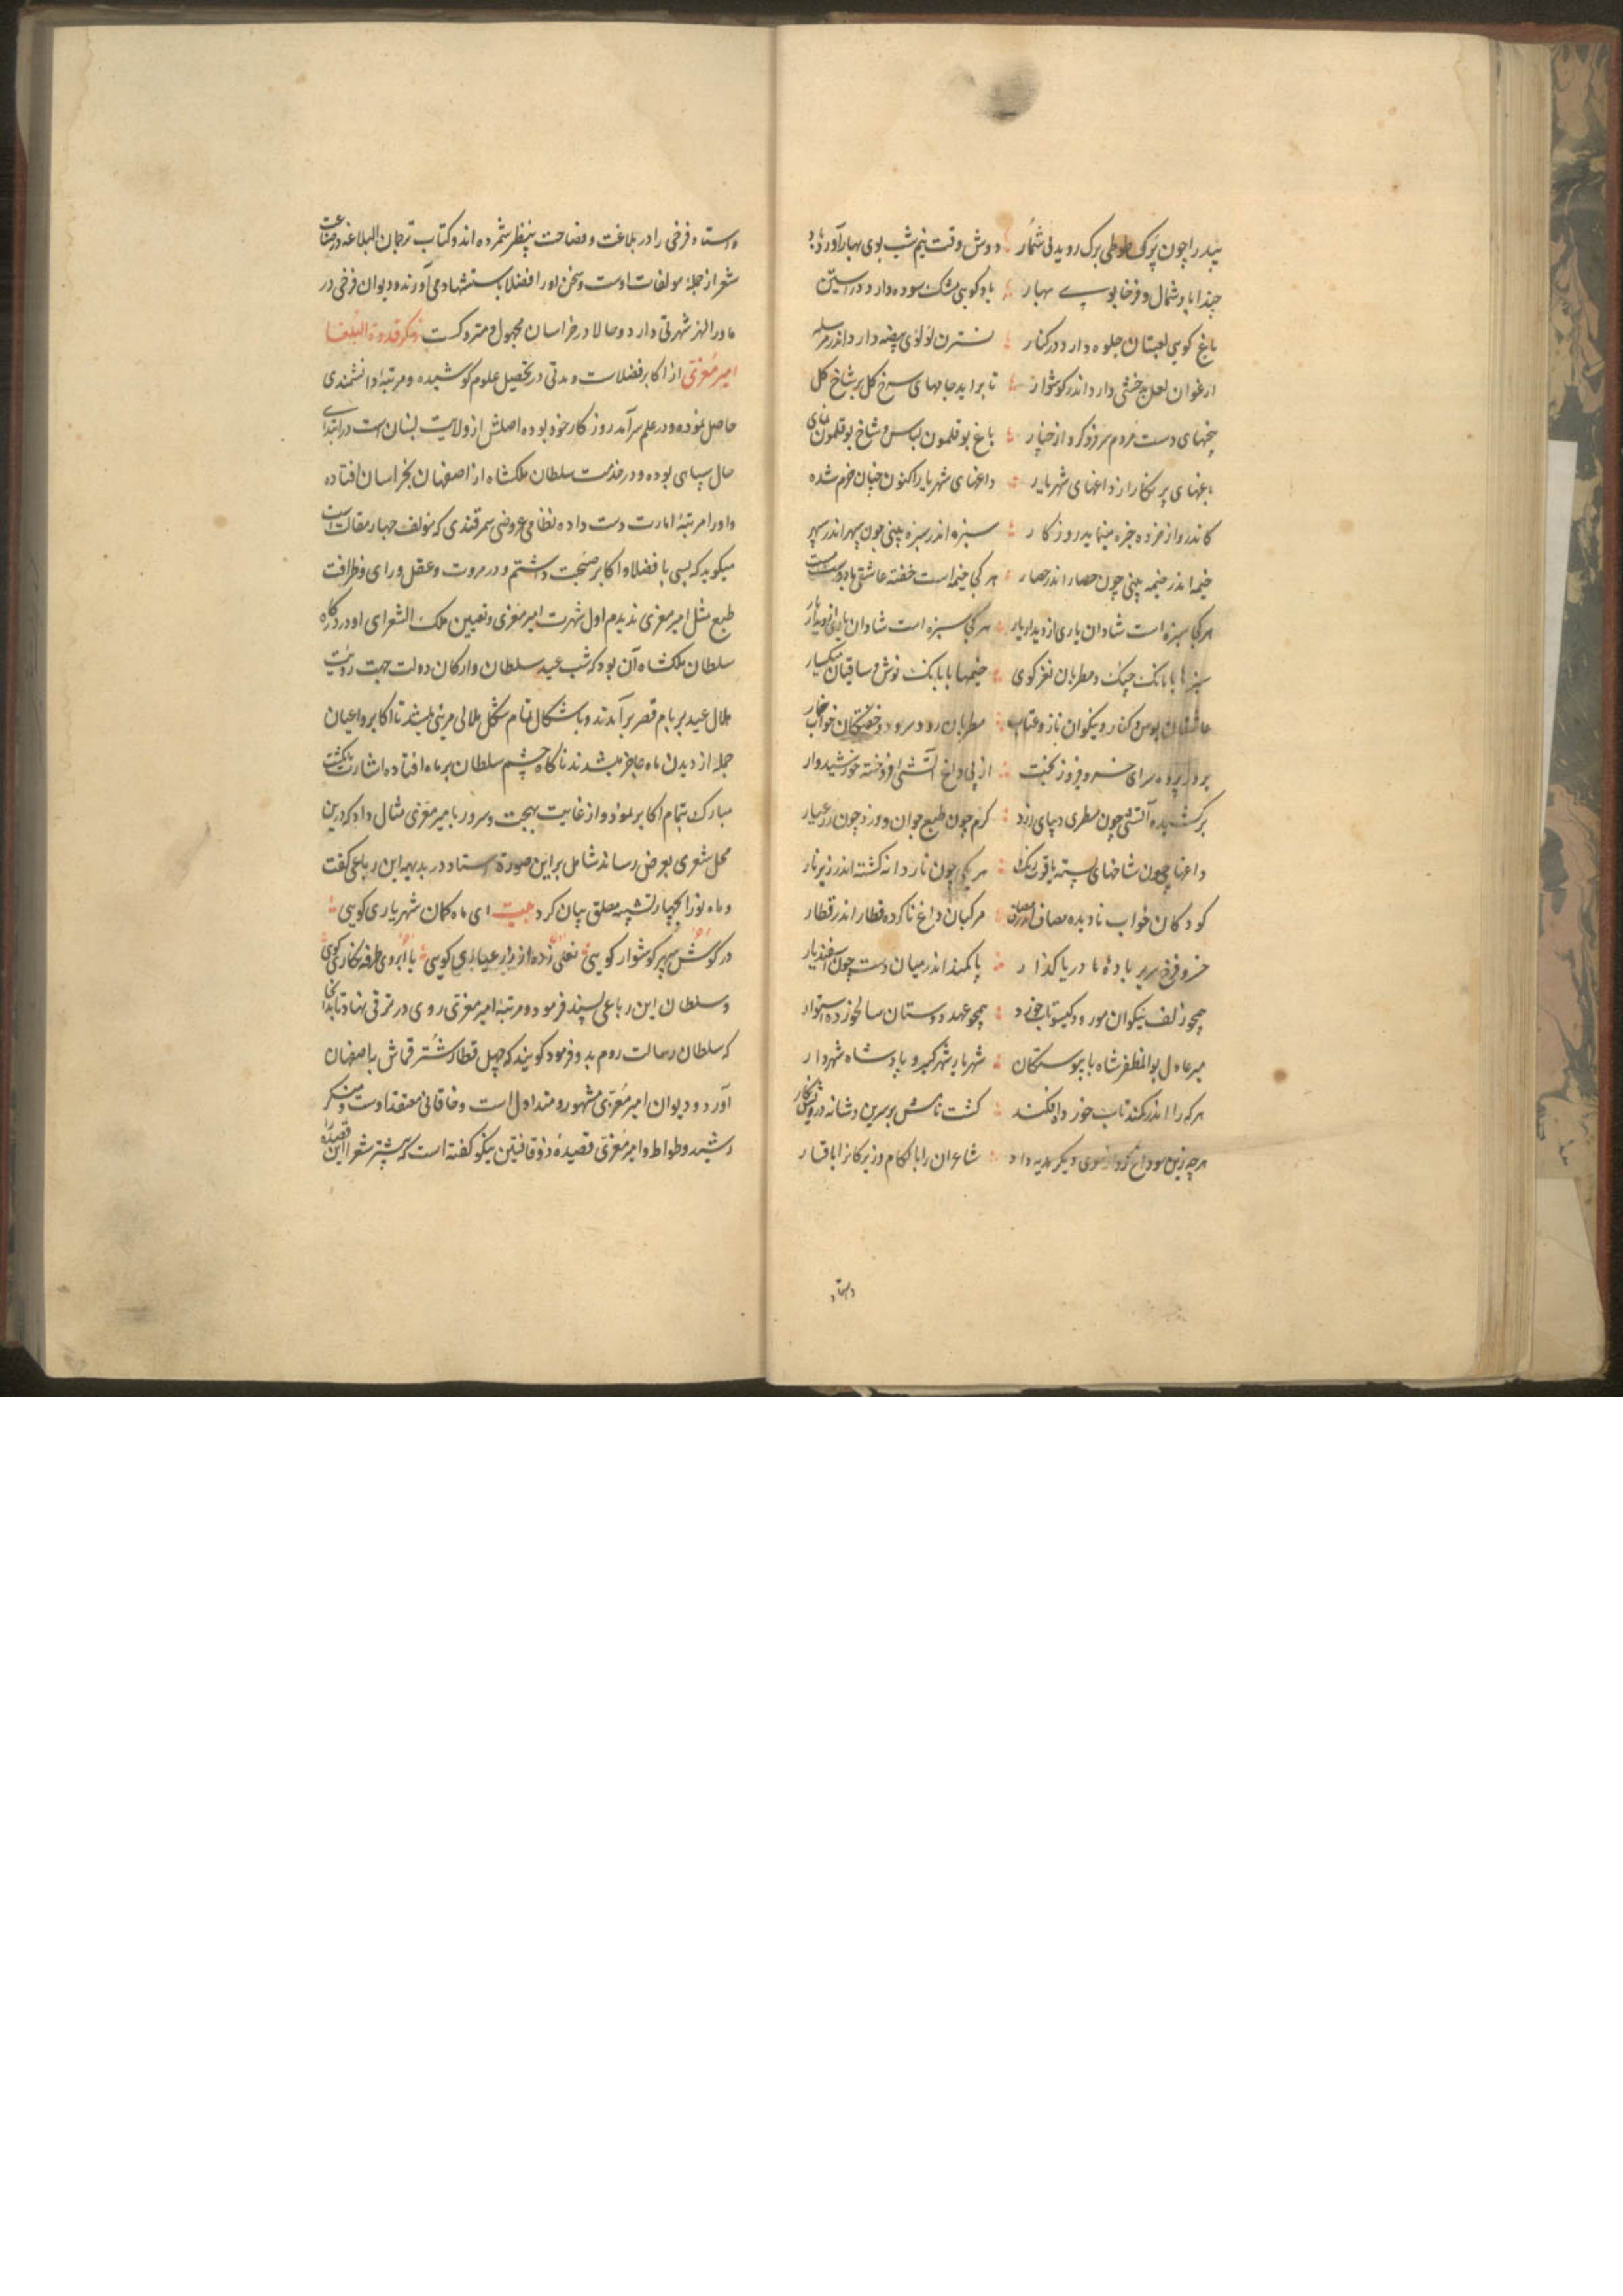 بید را چون پر طوطی برک روید بی شمار دوش وقت نیم شب بوی بهار آورد باد
حبذا باد شمال و فرخا بوی بهار باد کویی مشک سوده دارد در آستین
باغ کویی لعبتان جلوه دارد در کنار نسترن لولوی بیضه دارد اندر مرسله
ارغوان لعل بدخشی دارد اندر کوشوار تا بر آید جامهای سرخ کل بر شاخ کل
پنجهای دست مردم سر فرو کرد از چنار باغ بوقلمون لباس و شاخ بوقلمون نمای
باغهای پر نکار از داغهای شهریار داغهای شهریار اکنون چنان خرم شده
کاندرو از خرمی خیره بماند روزکار سبزه اندر سبزه بینی چون سپهر اندر سپهر
خیمه اندر خیمه بینی چون حصار اندر حصار هر کجا خیمه است خفته عاشقی با دوست مست
هر کجا سبزه است شادان یاری از دیدار یار
سبزها با بانک چنک و مطربان نغز کوی خیمها با بانک نوش و ساقیان میکسار
عاشقان بوس و کنار و نیکوان ناز و عتاب مطربان رود و سرود و خفتکان خواب و خمار
بر در پرده سرای خسرو فیروز بخت از پی داغ آتشی افروخته خورشیدوار
برکشیده آتشی چون مطرد دیبای زرد کرم چون طبع جوان و زرد چون زر عیار
داغها چون شاخهای بسد یاقوت رنک هر یکی چون نار دانه کشته اندر زیر نار
کودکان خواب نادیده مصاف اندر مصاف مرکبان داغ ناکرده قطار اندر قطار
خسرو فرخ سیر بر باره دریا کذار با کمند اندر میان دست چون اسفندیار
همچو زلف نیکوان مورد کیسو تاب خورد همچو عهد دوستان سالخورده استوار
میر عادل بوالمظفر شاه با پیوستکان شهریار شهرکیر و پادشاه شهردار
هر که را اندر کمند تاب خورد افکند کشت نامش بر سرین و شانه و رویش نکار
هر چه زین سو داغ کرد از سوی دیکر هدیه داد شاعران را با لکام و زیرکان را با فسار
واستاد
واستاد فرخی را در بلاغت و فصاحت بینظیر شمرده اند و کتاب ترجمان البلاغه در صناعت
شعر از جمله مولفات اوست و سخن او را فضلا باستشهاد می آورند و دیوان فرخی در
ماورالنهر شهرتی دارد و حالا در خراسان مجهول و متروکست ذکر قدوة البلغا
امیر معزی از اکابر فضلاست و مدتی در تحصیل علوم کوشیده و مرتبه دانشمندی
حاصل نموده و در علم سرآمد روزکار خود بوده اصلش از ولایت است در ابتدای
حال سپاهی بوده و در خدمت سلطان ملکشاه از اصفهان بخراسان افتاده
و او را مرتبه امارت دست داده نظامی عروضی سمرقندی که مولف چهار مقالت است
میکوید که بسی با فضلا و اکابر صحبت داشتم و در مروت و عقل و رای و ظرافت
طبع مثل امیر معزی ندیدم اول شهرت امیر معزی و تعیین ملک الشعرای او در درکاه
سلطان ملکشاه آن بود که شب عید سلطان و ارکان دولت جهت رویت
هلال عید بر بام قصر برآمدند و باشکال تمام شکل هلالی مریی میشد تا اکابر و اعیان
جمله از دیدن ماه عاجز شدند ناکاه چشم سلطان بر ماه افتاده اشارت بانکشت
مبارک بتمام اکابر نمود و از غایت بهجت و سرور با میر معزی مثال داد که درین
محل شعری بعرض رساند شامل بر این صورت استاد در بدیهه این رباعی کفت
و ماه نو را بچهار تشبیه مطلق بیان کرد بیت ای ماه کمان شهریاری کویی
در کوش سپهر کوشوار کویی نعلی زده از زر عیاری کویی یا ابروی طرفه نکاری کویی
و سلطان این رباعی پسند فرمود و مرتبه امیر معزی روی در ترقی نهاد تا بدانجا
که سلطان رسالت روم بدو فرمود کویند که چهل قطار شتر قماش باصفهان
آورد و دیوان امیر معزی مشهور و متداول است و خاقانی معتقد اوست و منکر
رشید وطواط و امیر معزی قصیده ذوقافیتین نیکو کفته است که بیشتر شعرا این قصیده را